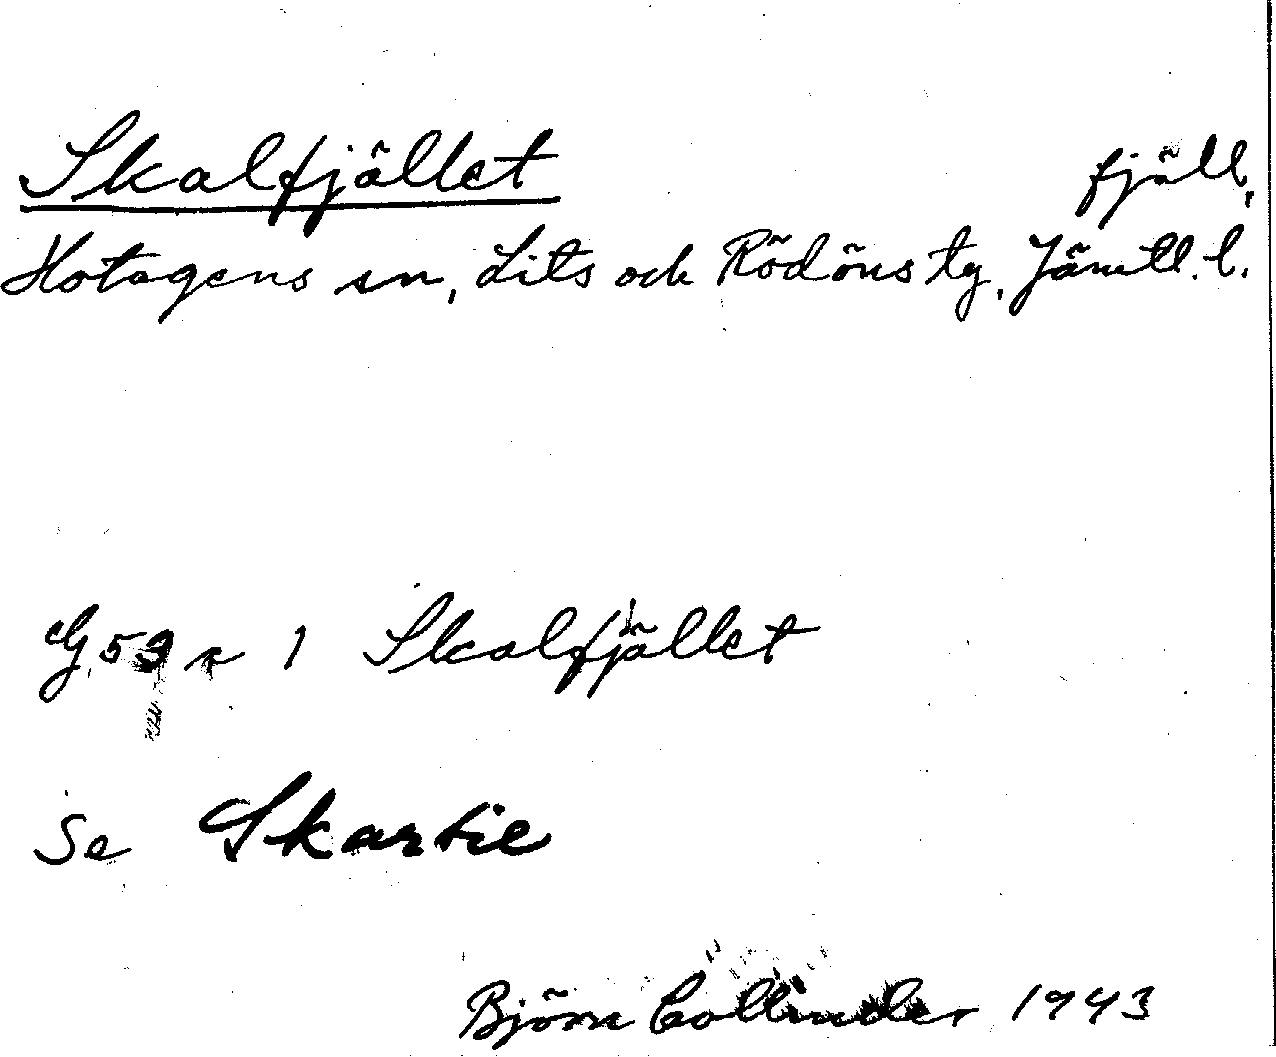 Skalfjället fjäll,
Hotagens sn, Lits och Rödöns tg, Jämtl. l.
G 53 r 1 Skalfjället
Se Skartie
Björn Collinder 1943